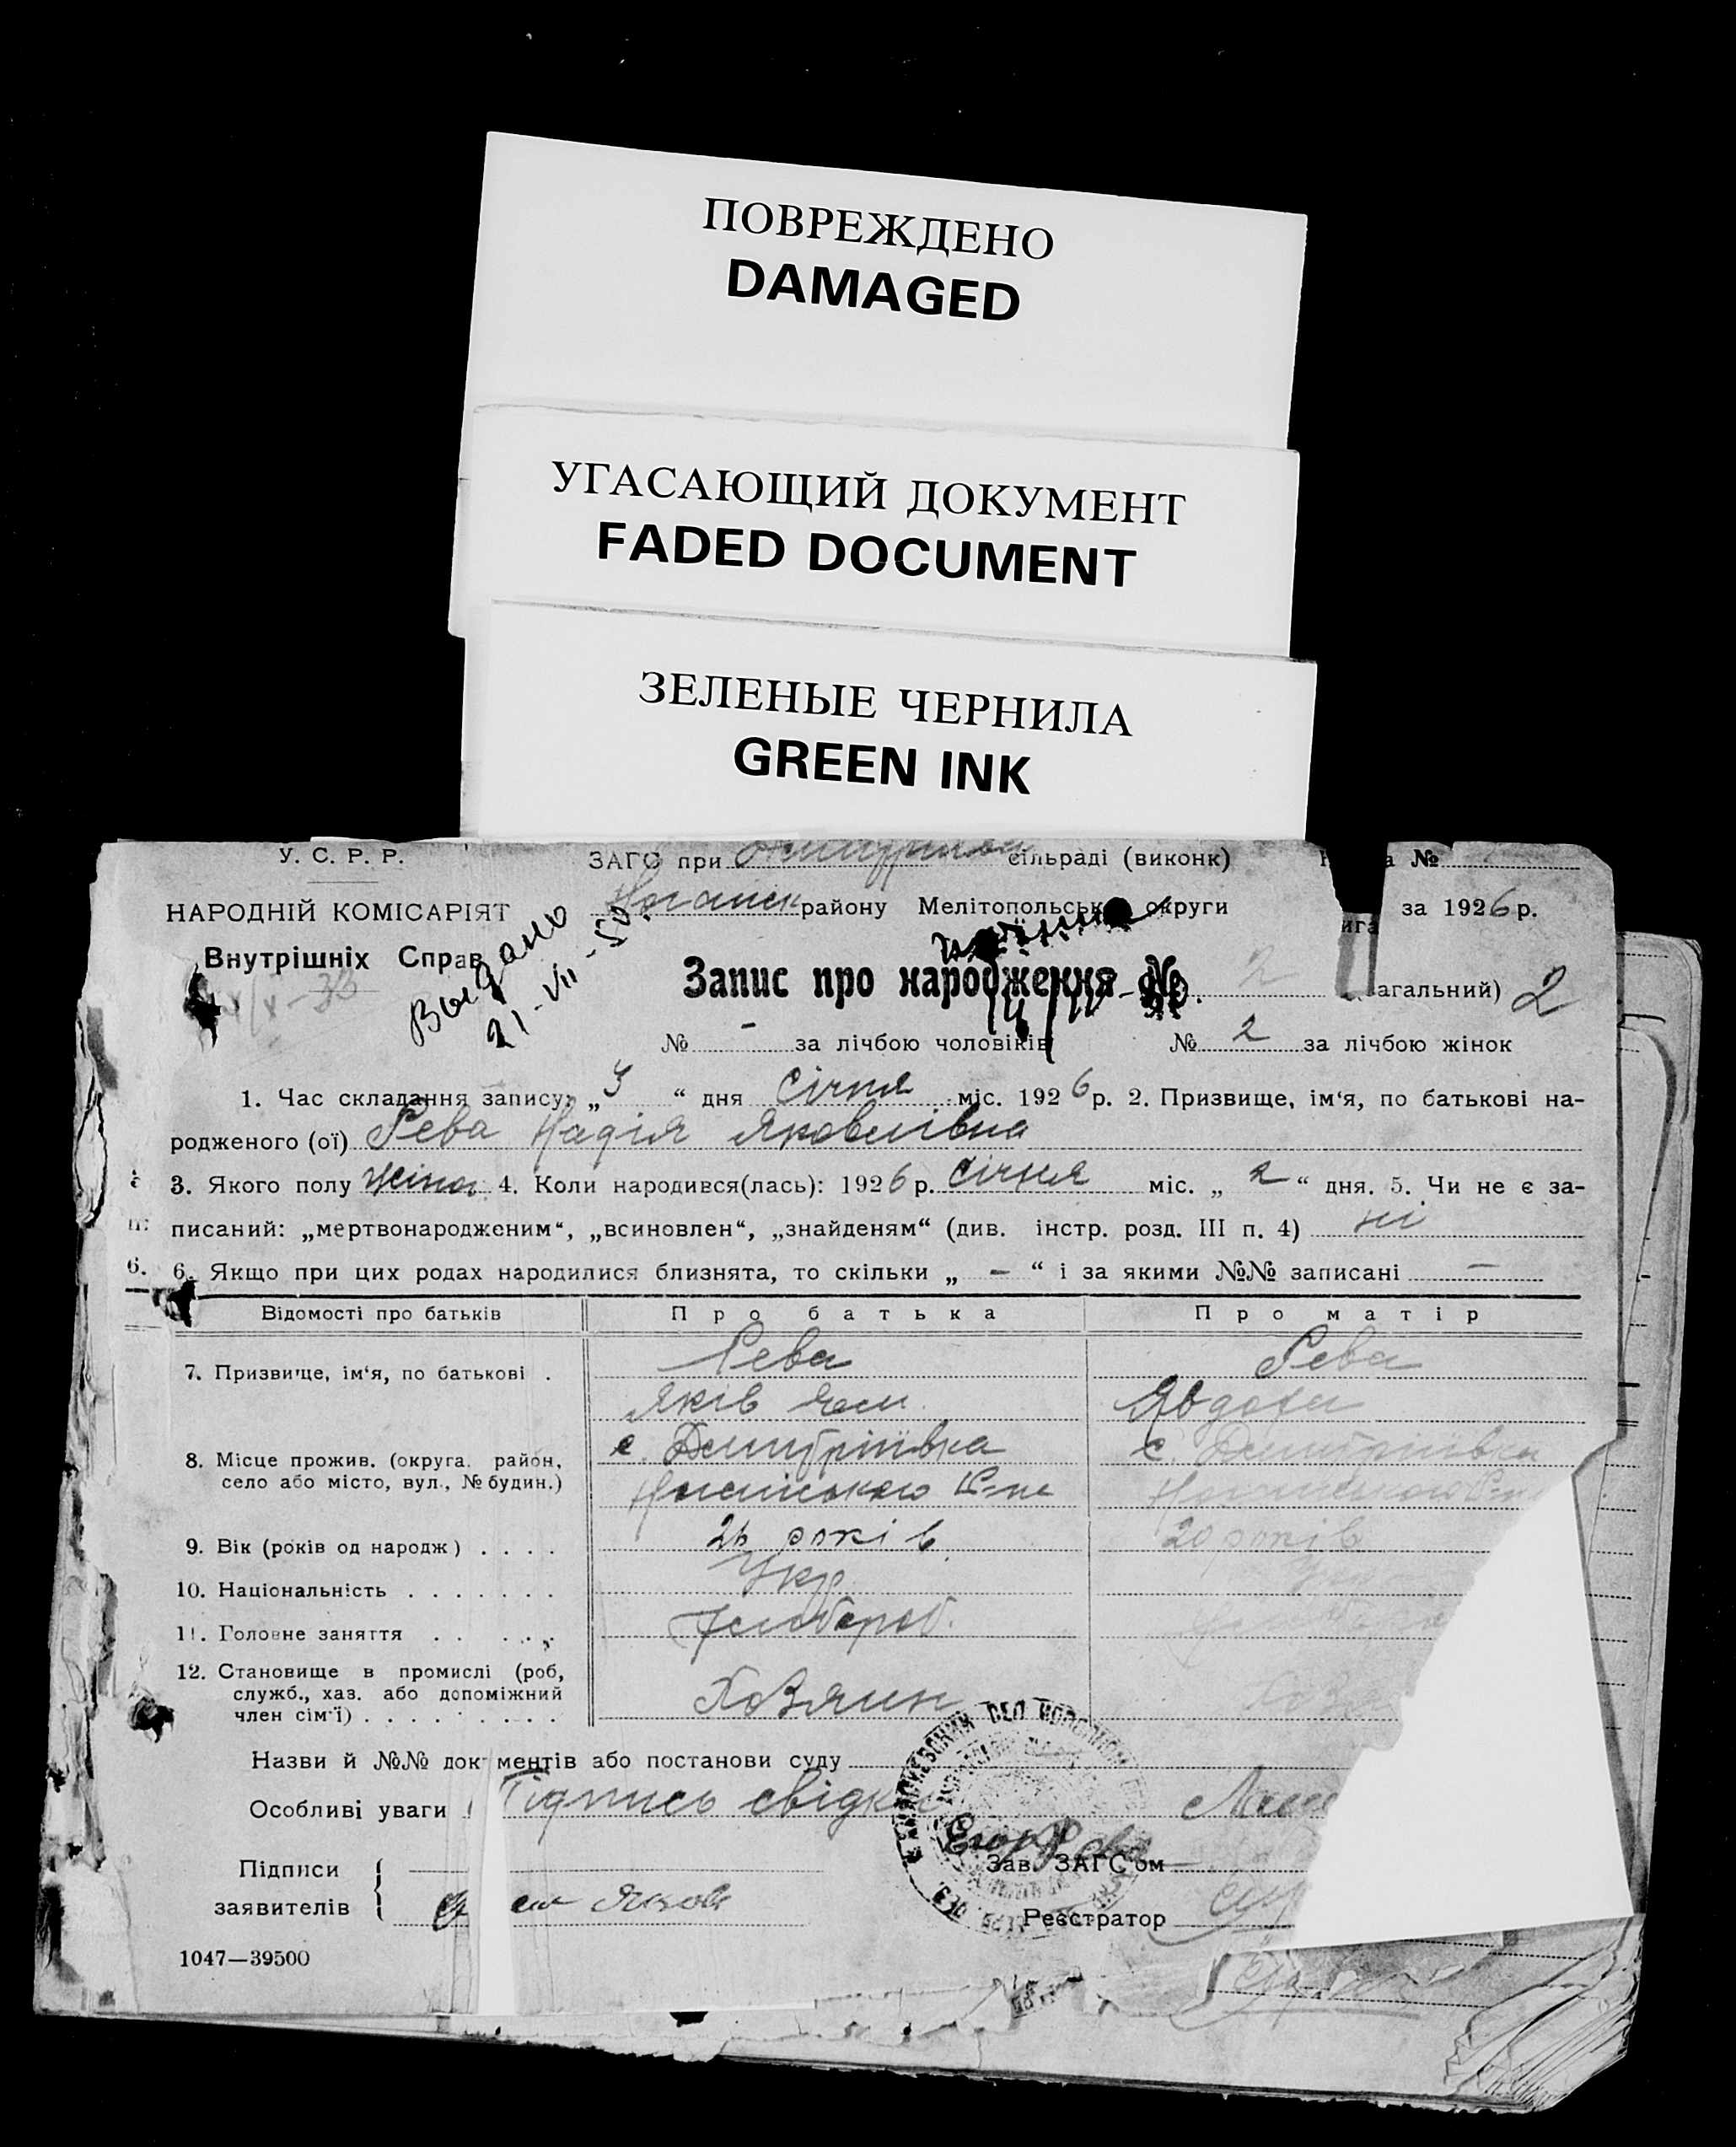 ПОВРЕЖДЕНО
DAMAGED
УГАСАЮЩИЙ ДОКУМЕНТ
FADED DOCUMENT
ЗЕЛЕНЫЕ ЧЕРНИЛА
GREEN INK
У. С. Р. Р.
ЗАГС при сільраді (виконк) №
НАРОДНІЙ КОМІСАРІЯТ
району Мелітопольськ округи за 1926 р.
Внутрішніх Справ
Выдано
21-VII-50.
Запис про народження № 2 (загальний) 2
№ - за лічбою чоловіків № 2 за лічбою жінок
1. Час складання запису: „3“ дня Січня міс. 1926 р. 2. Призвище, ім‘я, по батькові на-
родженого (ої) Рева Надія Яковлівна
3. Якого полу жіноч. 4. Коли народився(лась): 1926 р. Січня міс. „2“ дня. 5. Чи не є за-
писаний: „мертвонародженим“, „всиновлен“, „знайденям“ (див. інстр. розд. III п. 4) ні
6. 6. Якщо при цих родах народилися близнята, то скільки „ – “ і за якими №№ записані –
Відомості про батьків Про батька Про матір
7. Призвище, ім‘я, по батькові . Рева Рева
Яків Явдоха
8. Місце прожив. (округа, район, с. Дмитріївка с. Дмитріївка
село або місто, вул., № будин.) Р-на
9. Вік (років од народж) . . . . 26 років 20 років
10. Національність . . . . . . . Укр. Укр
11. Головне заняття . . . . . Хлібороб.
12. Становище в промислі (роб,
служб., хаз. або допоміжний
член сім‘ї) . . . . . . . . . Хозяин
Назви й №№ документів або постанови суду
Особливі уваги Підпись свідків
Егор Рева
Підписи
Зав. ЗАГС‘ом
заявителів
Реєстратор
1047—39500